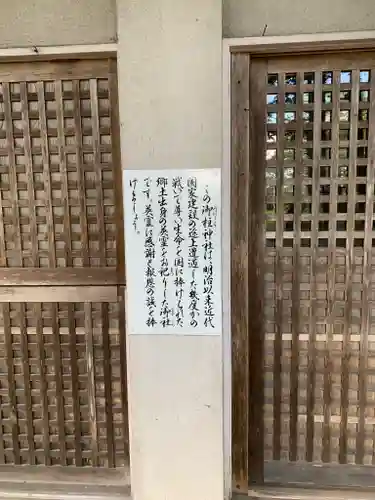 この御祖神社は、明治以来近代
国家建設の途上遭遇した幾度かの
戦いで尊い生命を国に捧げられた
郷土出身の英霊をお祀りした御社
です。英霊に感謝と報恩の誠を捧
げましょう。